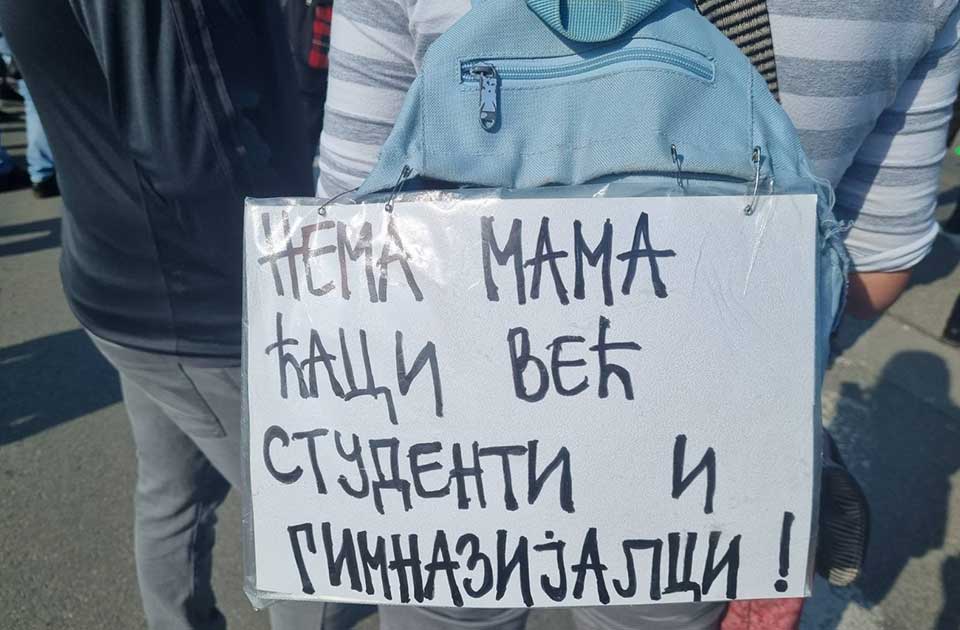 НЕМА МАМА
ЋАЦИ ВЕЋ
СТУДЕНТИ И
ГИМНАЗИЈАЛЦИ!